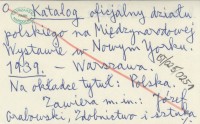 a Katalog oficjalny działu
polskiego na Międzynarodowej
Wystawie w Nowym Yorku.
1939. – Warszawa.
Na okładce tytuł: Polska.
Zawiera m.in.: Józef
Grabowski, Zdobnictwo i sztuka